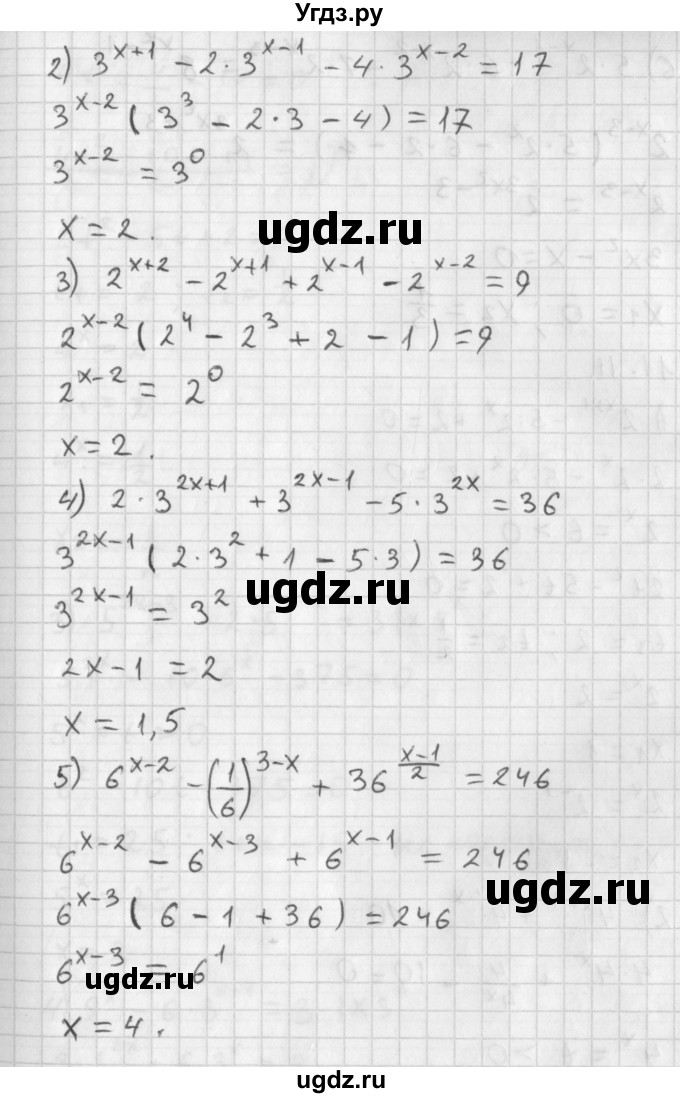 Угдз.ру
2) 3^(x+1) - 2·3^(x-1) - 4·3^(x-2) = 17
3^(x-2) (3^3 - 2·3 - 4) = 17
3^(x-2) = 3^0
x = 2.
ugdz.ru
3) 2^(x+2) - 2^(x+1) + 2^(x-1) - 2^(x-2) = 9
2^(x-2) (2^4 - 2^3 + 2 - 1) = 9
2^(x-2) = 2^0
x = 2.
4) 2·3^(2x+1) + 3^(2x-1) - 5·3^(2x) = 36
3^(2x-1) (2·3^2 + 1 - 5·3) = 36
ugdz.ru
3^(2x-1) = 3^2
2x - 1 = 2
x = 1,5
5) 6^(x-2) - (1/6)^(3-x) + 36^((x-1)/2) = 246
6^(x-2) - 6^(x-3) + 6^(x-1) = 246
ugdz.ru
6^(x-3) (6 - 1 + 36) = 246
6^(x-3) = 6^1
ugdz.ru
x = 4.
ugdz.ru